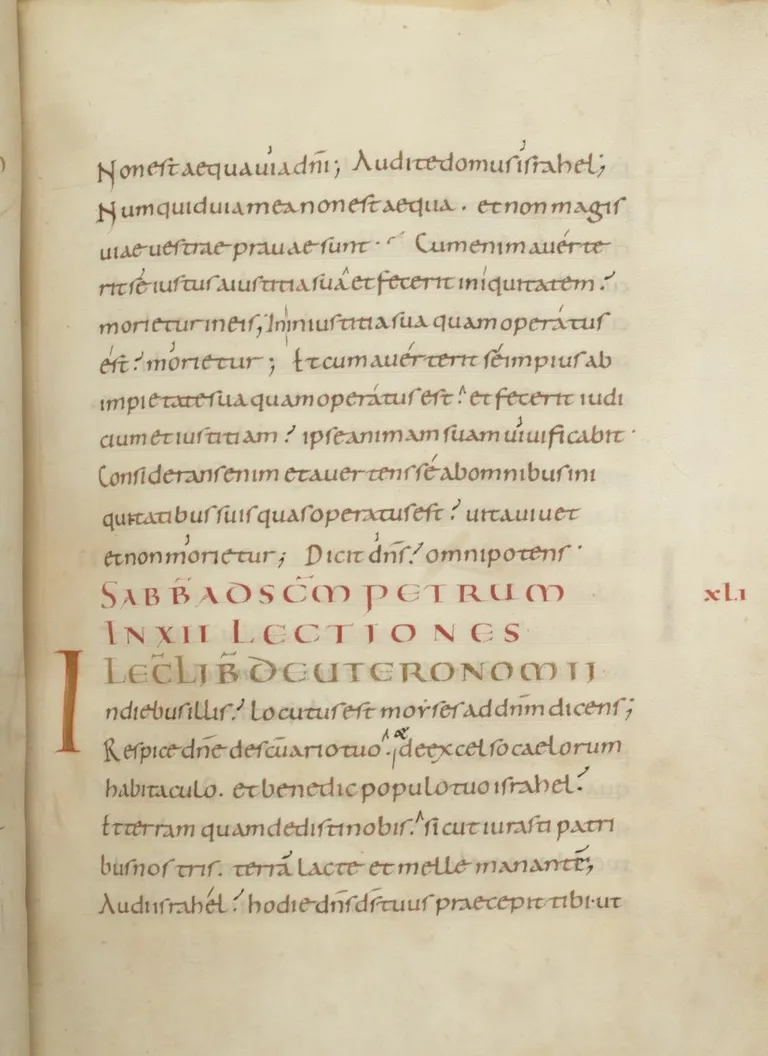 Non est aequa uia dn̄i; Audite domus israhel;
Numquid uia mea non est aequa . et non magis
uiae uestrae prauae sunt · Cum enim auérte
rit sé iustus a iustitia sua et fecerit iniquitatem ?
morietur in eis; In iniustitia sua quam operátus
ést ? morietur ; Et cum auérterit sé impius ab
impietate sua quam operátus est ? et fecerit iudi
cium et iustitiam ? ipse animam suam uiuificabit ·
Considerans enim et auertens sé ab omnibus ini
quitatibus suis quas operatus est ? uita uiuet
et non morietur ; Dicit dn̄s ? omnipotens ·
SABB̄ AD SC̄M PETRUM
XLI
IN XII LECTIONES
LEC̄ LIB̄ DEUTERONOMII
In diebus illis ? Locutus est moyses ad dn̄m dicens ;
Respice dn̄e de sc̄uario tuo . & de excelso caelorum
habitaculo . et benedic populo tuo israhel ?
Et terram quam dedisti nobis ? sicut iurasti patri
bus nostris . terrā lacte et melle manantē ;
Audi israhél ? hodie dn̄s ds̄ tuus praecepit tibi · ut